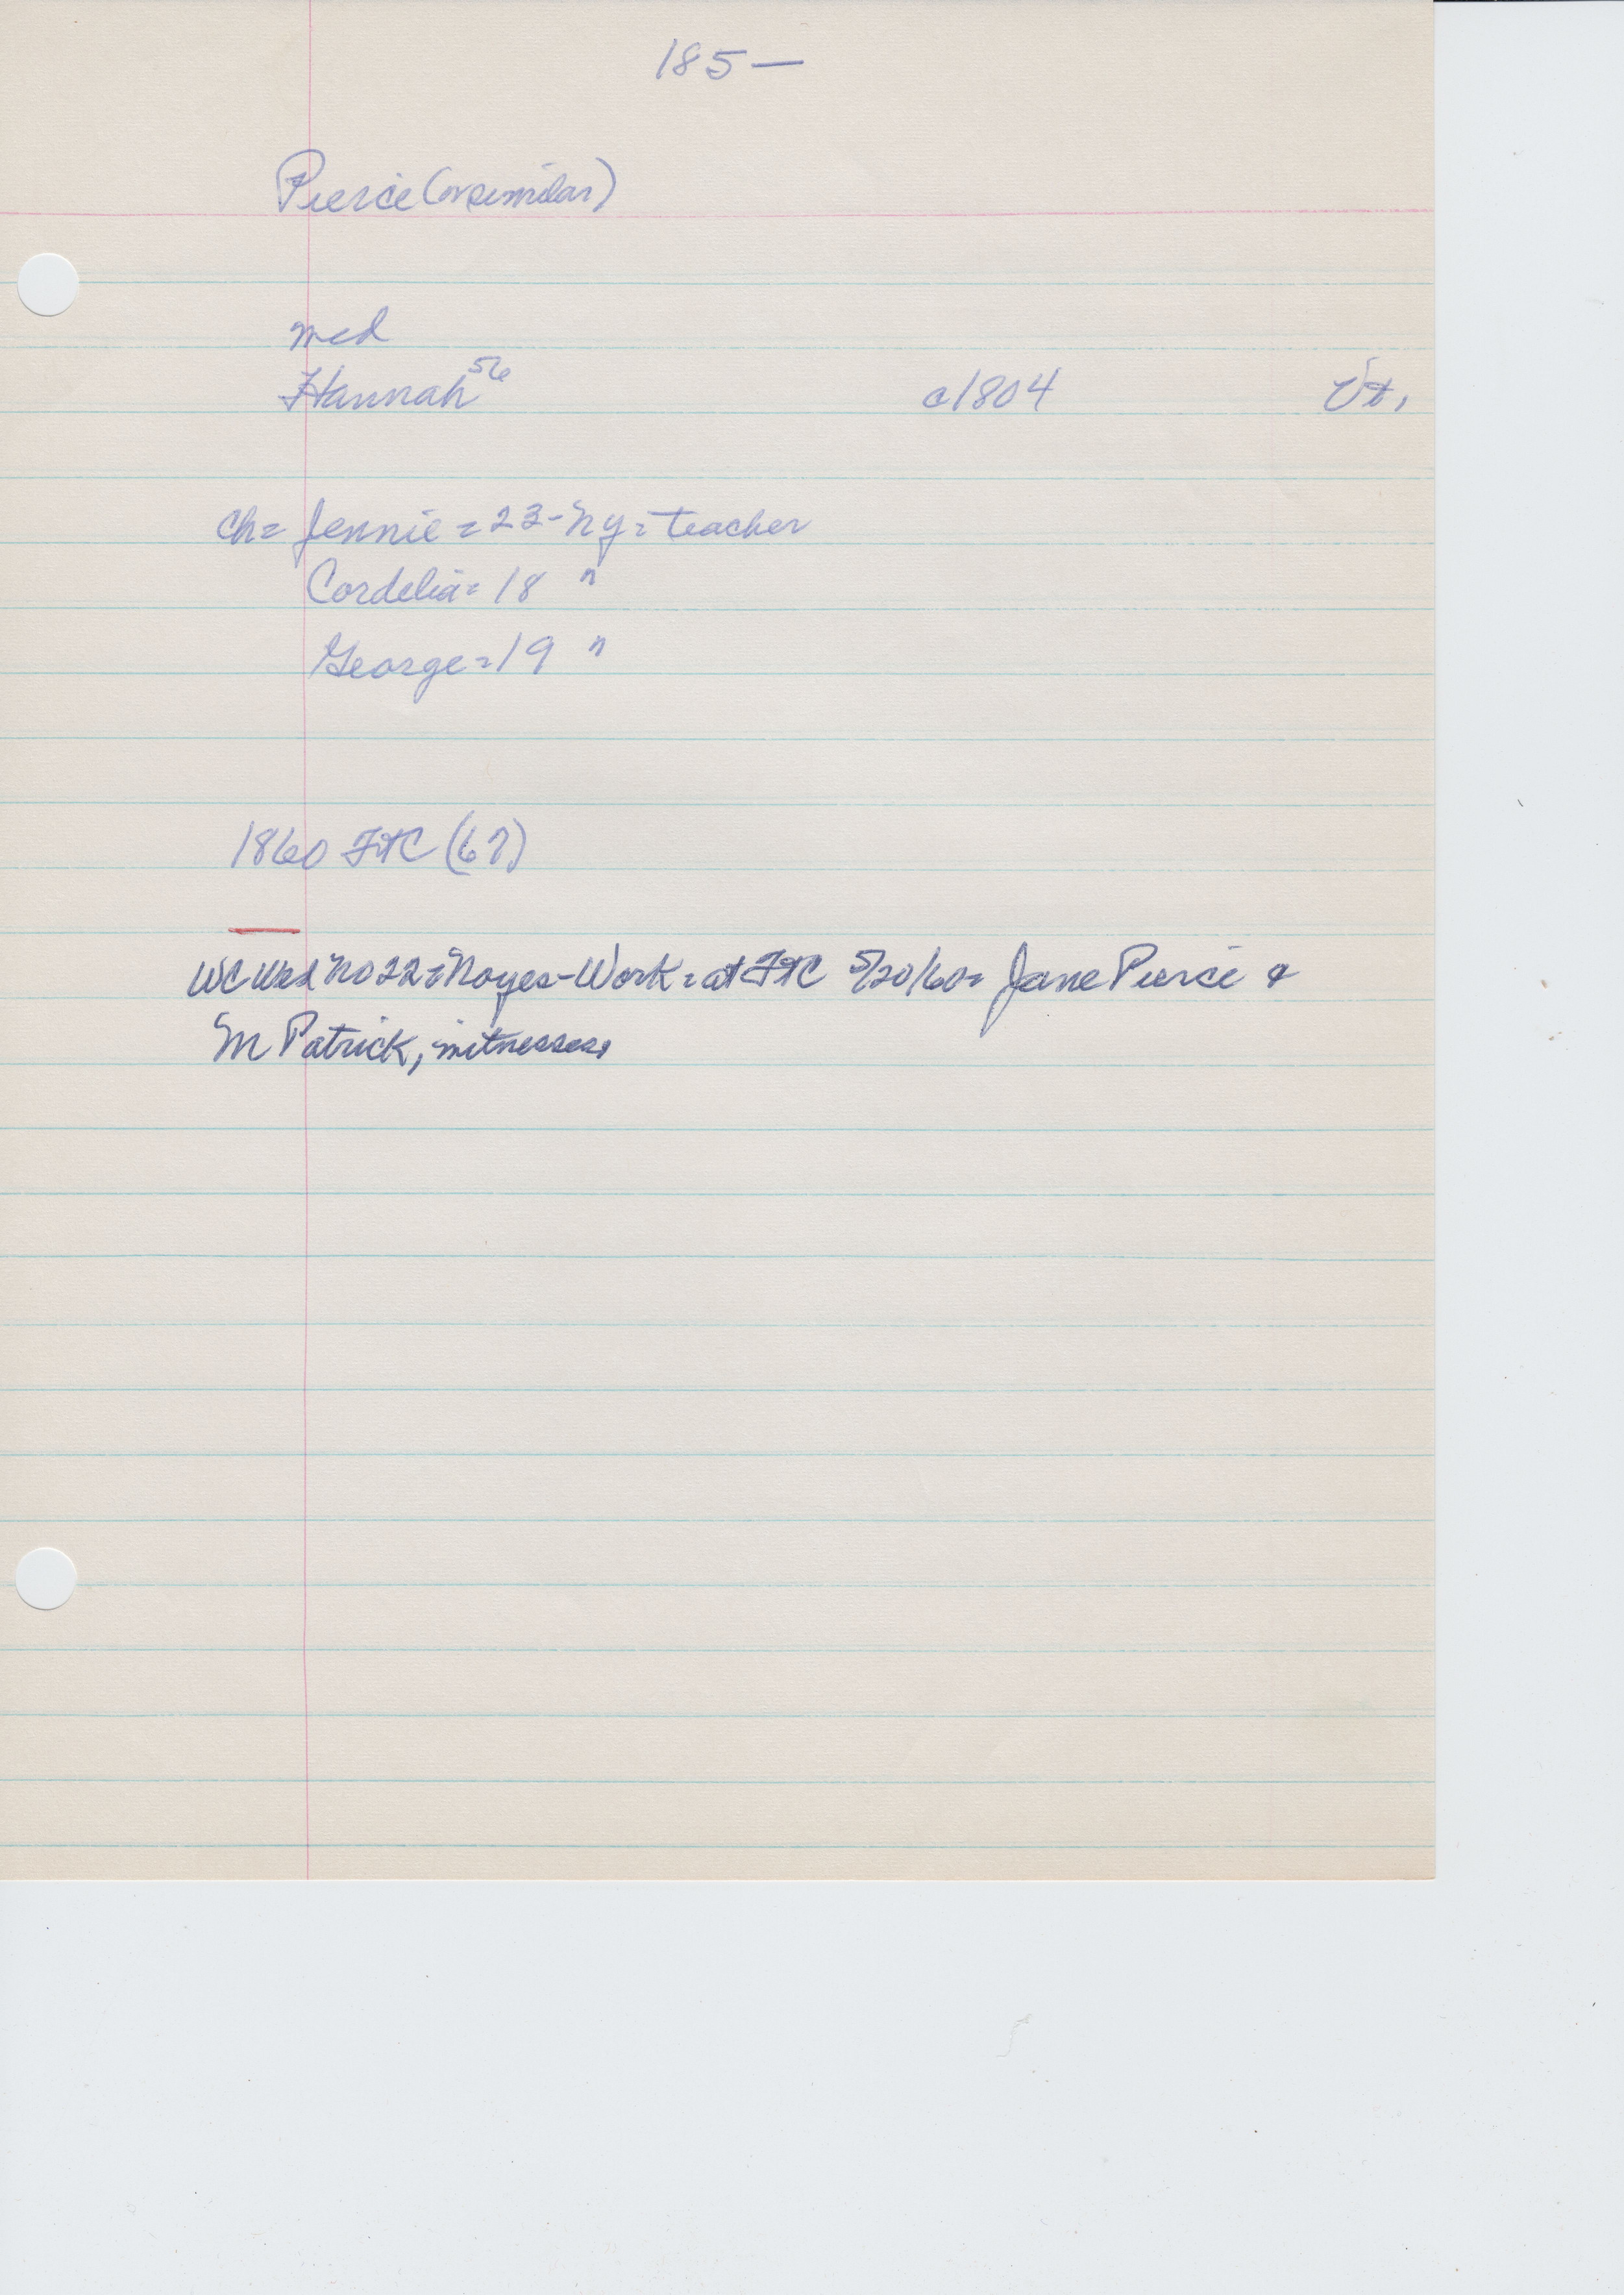 185—
Pierce (or similar)
md
Hannah 56 c1804 Vt.
Ch= Jennie = 23 - NY = teacher
Cordelia = 18 "
George = 19 "
1860 FtC (67)
WC Wed No 22 = Noyes - Work = at FtC 5/20/60 = Jane Pierce &
M Patrick, witnesses.